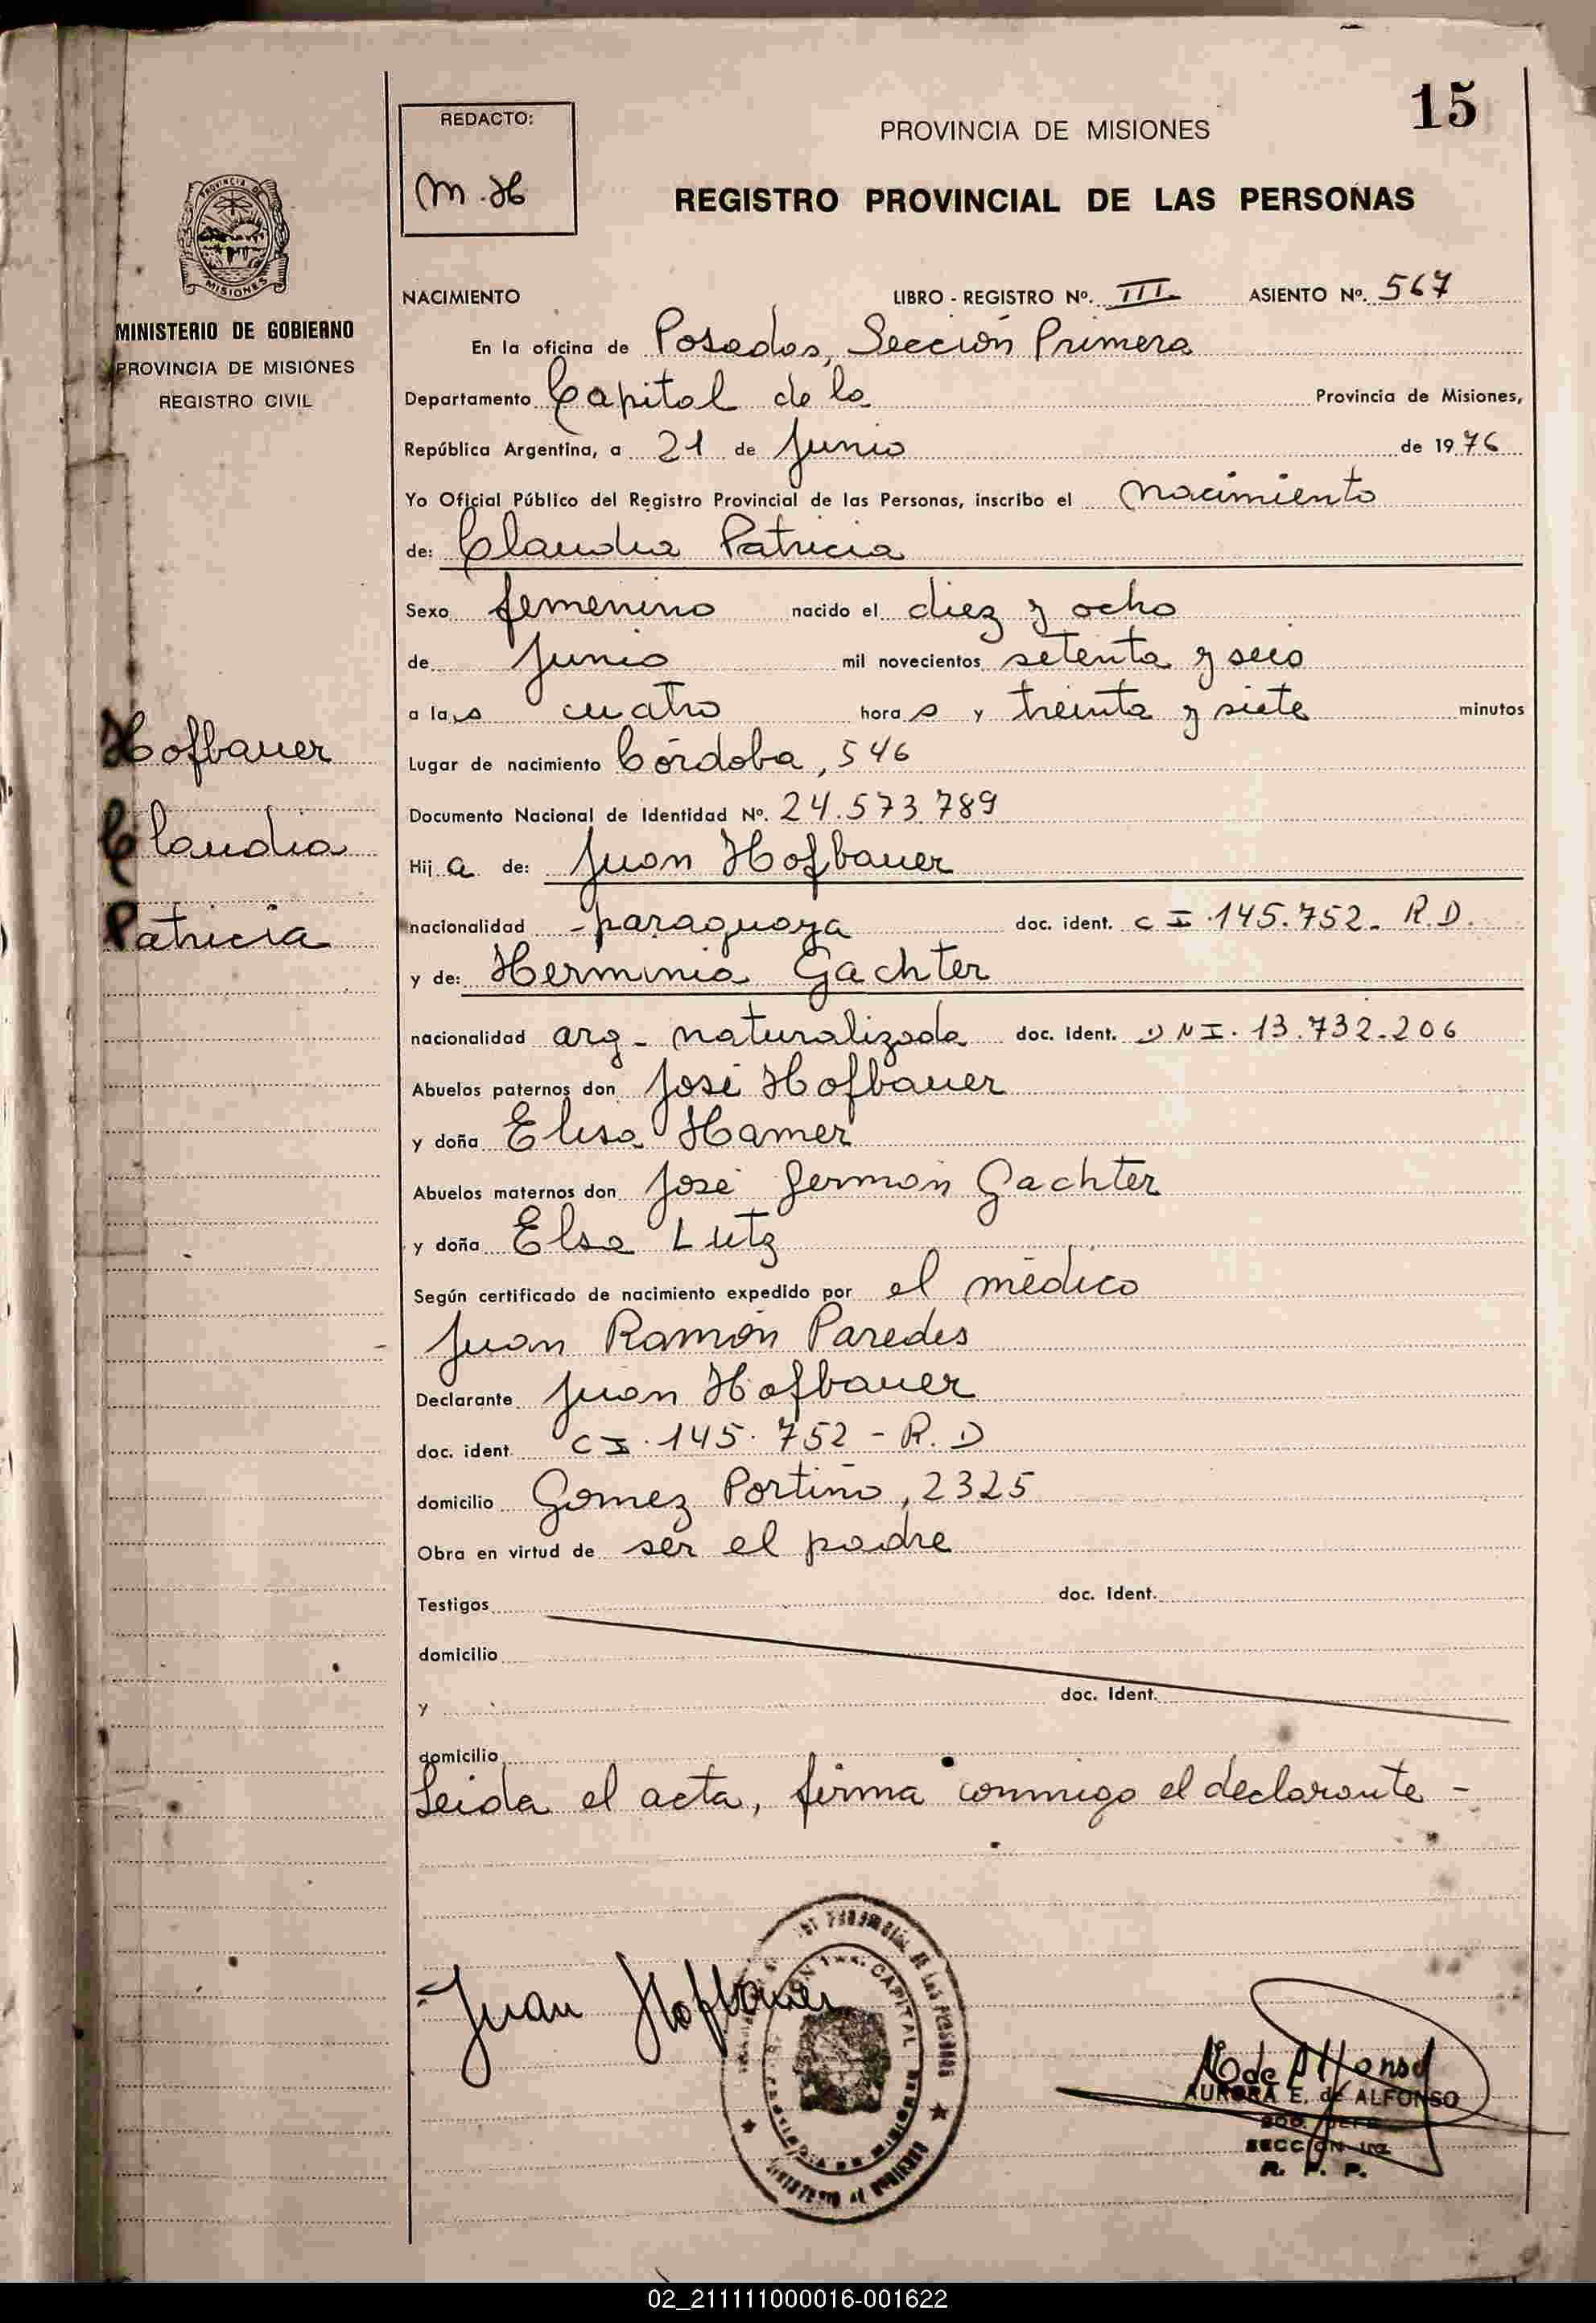 15
REDACTO:
M.H
PROVINCIA DE MISIONES
REGISTRO PROVINCIAL DE LAS PERSONAS
PROVINCIA DE
MISIONES
MINISTERIO DE GOBIERNO
PROVINCIA DE MISIONES
REGISTRO CIVIL
Hofbauer
Claudia
Patricia
NACIMIENTO LIBRO - REGISTRO Nº. III ASIENTO Nº. 567
En la oficina de Posadas, Sección Primera
Departamento Capital de la Provincia de Misiones,
República Argentina, a 21 de Junio de 1976
Yo Oficial Público del Registro Provincial de las Personas, inscribo el nacimiento
de: Claudia Patricia
Sexo femenino nacido el diez y ocho
de Junio mil novecientos setenta y seis
a las cuatro horas y treinta y siete minutos
Lugar de nacimiento Córdoba, 546
Documento Nacional de Identidad Nº. 24.573.789
Hija de: Juan Hofbauer
nacionalidad paraguaya doc. ident. C I. 145.752- R.D.
y de: Herminia Gachter
nacionalidad arg- naturalizada doc. ident. DNI. 13.732.206
Abuelos paternos don José Hofbauer
y doña Elisa Hamer
Abuelos maternos don José Germán Gachter
y doña Elsa Lutz
Según certificado de nacimiento expedido por el médico
Juan Ramón Paredes
Declarante Juan Hofbauer
doc. ident. CI. 145.752 - R.D
domicilio Gomez Portiño, 2325
Obra en virtud de ser el padre
Testigos doc. ident.
domicilio
y doc. ident.
domicilio
Leida el acta, firma conmigo el declarante -
Juan Hofbauer
CAPITAL
de Alfonso
AURORA E. de ALFONSO
SECCION 1ra
R. P. P.
02_211111000016-001622